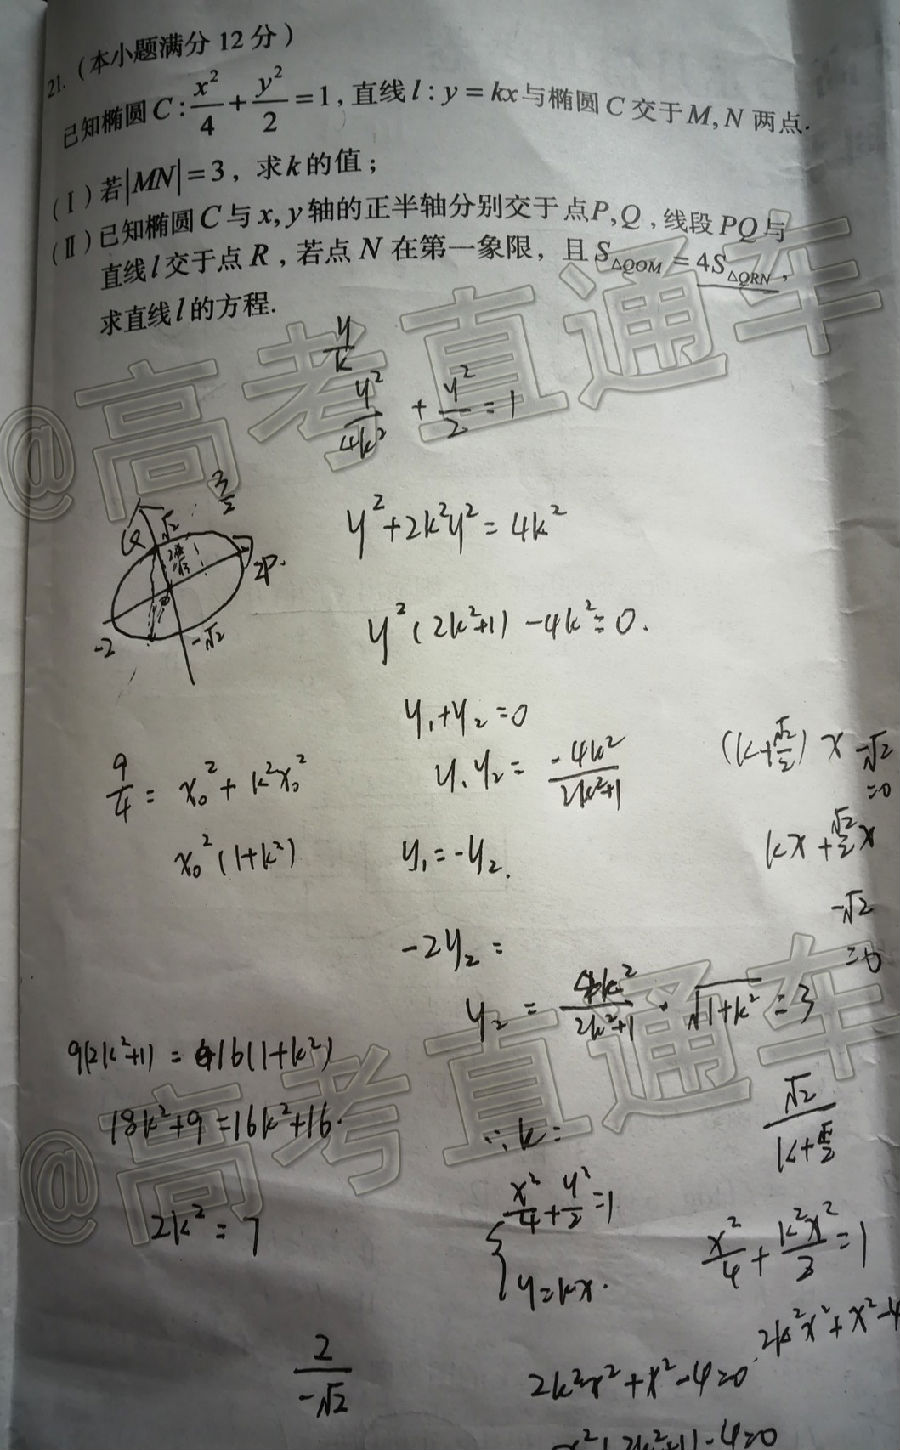 21.(本小题满分 12 分)
已知椭圆 C: x²/4 + y²/2 = 1, 直线 l: y = kx 与椭圆 C 交于 M, N 两点.
(Ⅰ) 若|MN| = 3, 求 k 的值;
(Ⅱ) 已知椭圆 C 与 x, y 轴的正半轴分别交于点 P, Q, 线段 PQ 与
直线 l 交于点 R, 若点 N 在第一象限, 且 S△QOM = 4S△QRN,
求直线 l 的方程.
@高考直通车
y/k
y²/4k² + y²/2 = 1
3/2
Q √2
2P.
-2 -√2
y² + 2k²y² = 4k²
y²(2k²+1) - 4k² = 0.
y₁+y₂ = 0
y₁y₂ = -4k²/2k²+1
y₁ = -y₂.
-2y₂ =
9/4 = x₀² + k²x₀²
x₀²(1+k²)
(k+√2/2) x -√2
=0
kx + √2/2 x
-√2
=0
y₂ = 4k²/2k²+1 · √1+k² = 3
@高考直通车
9(2k²+1) = 16(1+k²)
18k²+9 = 16k²+16.
2k² = 7
∴k =
√2/k+√2/2
x²/4 + y²/2 = 1
y = kx.
x²/4 + k²x²/2 = 1
2k²x² + x² - 4
2/-√2
2k²x² + x² - 4 = 0
x²(2k²+1) - 4 = 0